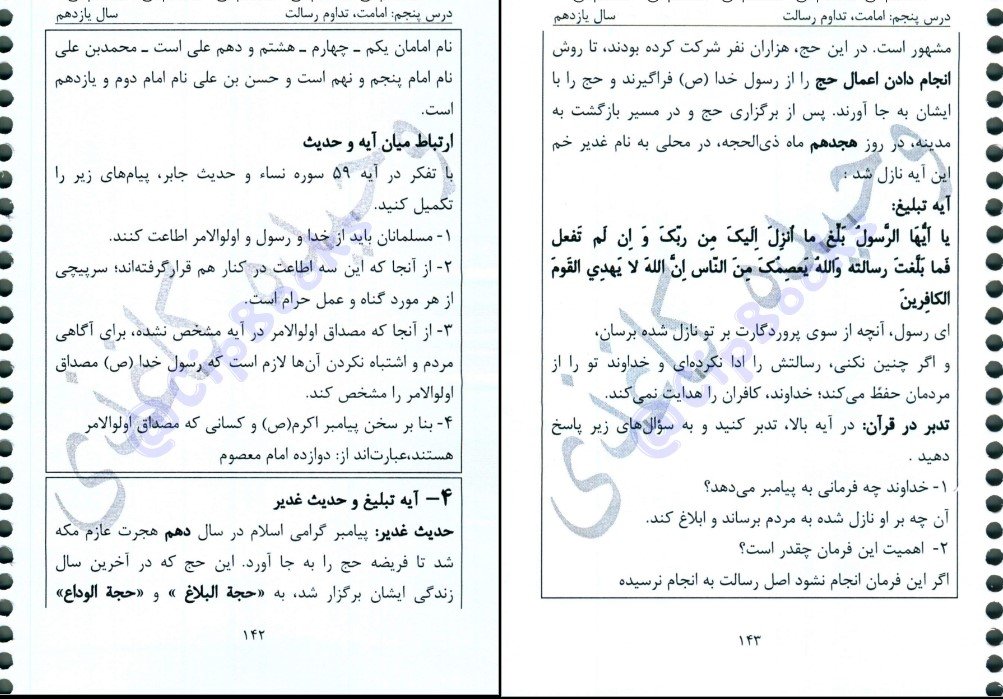 درس پنجم: امامت، تداوم رسالت
سال یازدهم
نام امامان یکم ـ چهارم ـ هشتم و دهم علی است ـ محمدبن علی
نام امام پنجم و نهم است و حسن بن علی نام امام دوم و یازدهم
است.
ارتباط میان آیه و حدیث
با تفکر در آیه ۵۹ سوره نساء و حدیث جابر، پیام‌های زیر را
تکمیل کنید.
۱- مسلمانان باید از خدا و رسول و اولوالامر اطاعت کنند.
۲- از آنجا که این سه اطاعت در کنار هم قرارگرفته‌اند؛ سرپیچی
از هر مورد گناه و عمل حرام است.
۳- از آنجا که مصداق اولوالامر در آیه مشخص نشده، برای آگاهی
مردم و اشتباه نکردن آن‌ها لازم است که رسول خدا (ص) مصداق
اولوالامر را مشخص کند.
۴- بنا بر سخن پیامبر اکرم(ص) و کسانی که مصداق اولوالامر
هستند،عبارت‌اند از: دوازده امام معصوم
۴– آیه تبلیغ و حدیث غدیر
حدیث غدیر: پیامبر گرامی اسلام در سال دهم هجرت عازم مکه
شد تا فریضه حج را به جا آورد. این حج که در آخرین سال
زندگی ایشان برگزار شد، به «حجة البلاغ » و «حجة الوداع»
۱۴۲
درس پنجم: امامت، تداوم رسالت
سال یازدهم
مشهور است. در این حج، هزاران نفر شرکت کرده بودند، تا روش
انجام دادن اعمال حج را از رسول خدا (ص) فراگیرند و حج را با
ایشان به جا آورند. پس از برگزاری حج و در مسیر بازگشت به
مدینه، در روز هجدهم ماه ذی‌الحجه، در محلی به نام غدیر خم
این آیه نازل شد :
آیه تبلیغ:
یا اَیُّهَا الرَّسولُ بَلِّغ ما اُنزِلَ اِلَیکَ مِن رَبِّکَ وَ اِن لَم تَفعَل
فَما بَلَّغتَ رِسالَتَه وَاللهُ یَعصِمُکَ مِنَ النّاس اِنَّ اللهَ لا یَهدِي القَومَ
الکافِرینَ
ای رسول، آنچه از سوی پروردگارت بر تو نازل شده برسان،
و اگر چنین نکنی، رسالتش را ادا نکرده‌ای و خداوند تو را از
مردمان حفظ می‌کند؛ خداوند، کافران را هدایت نمی‌کند.
تدبر در قرآن: در آیه بالا، تدبر کنید و به سؤال‌های زیر پاسخ
دهید .
۱- خداوند چه فرمانی به پیامبر می‌دهد؟
آن چه بر او نازل شده به مردم برساند و ابلاغ کند.
۲- اهمیت این فرمان چقدر است؟
اگر این فرمان انجام نشود اصل رسالت به انجام نرسیده
۱۴۳